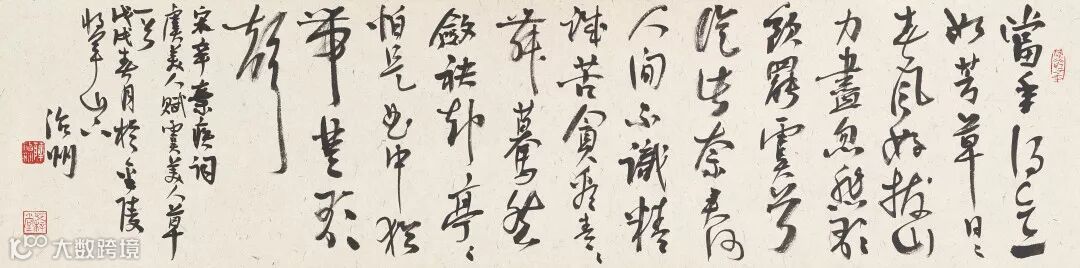 當年得意
如芳草日〻
春風好拔山
力盡忽悲歌
飲罷虞兮
從此奈君何
人間不識精
誠苦貪看青〻
舞驀然
斂袂卻亭〻
怕是曲中猶
帶楚歌
聲
宋辛棄疾詞
虞美人賦虞美人草
一首
戊戌春月於金陵
將軍山下
治州
大数跨境